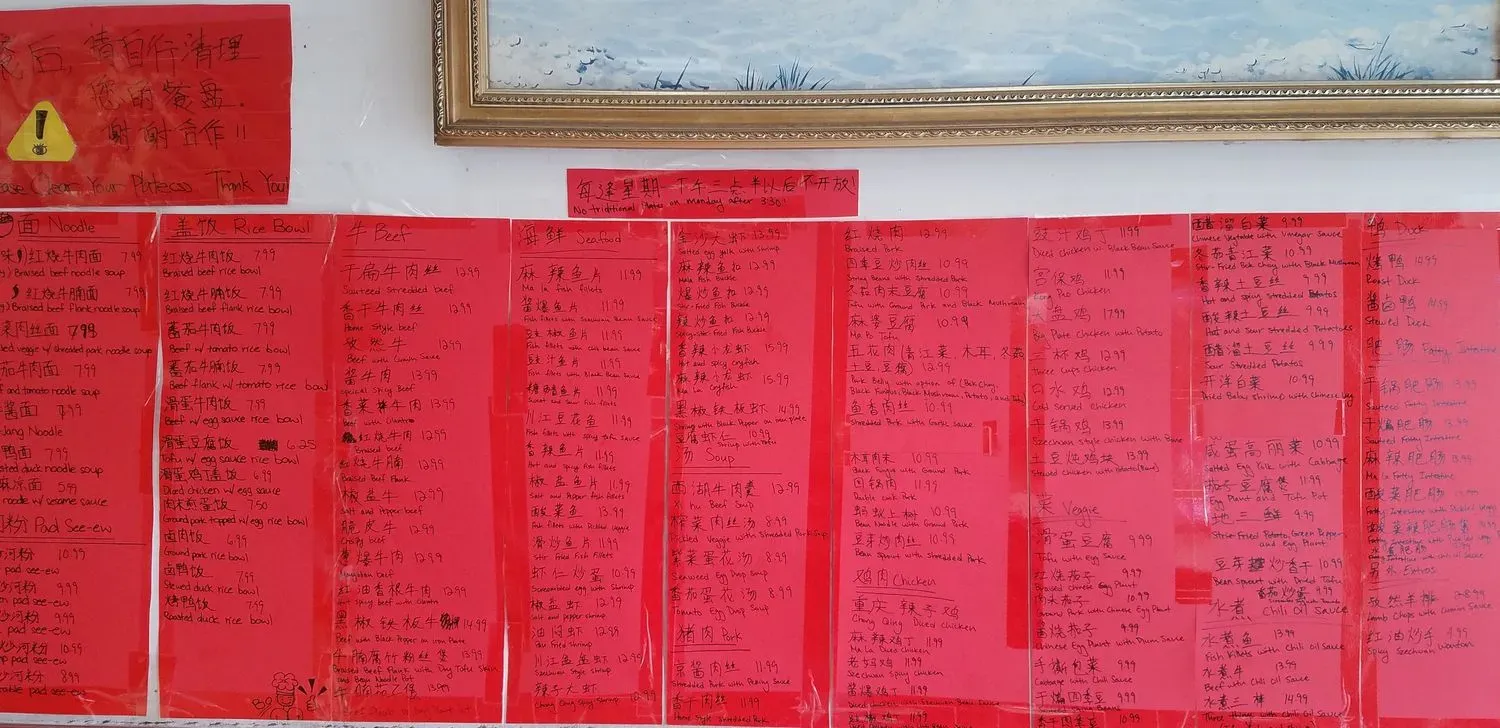 后,请自行清理
您的餐盘.
谢谢合作!!
Clear Your Plates Thank You!
每逢星期一下午三点半以后不开放!
No traditional plates on monday after 3:30!
面 Noodle
红烧牛肉面
Braised beef noodle soup
红烧牛腩面 7.99
Braised beef flank noodle soup
菜肉丝面 7.99
veggie w/ shredded pork noodle soup
茄牛肉面 7.99
and tomato noodle soup
酱面 7.99
Jang Noodle
鸭面 7.99
duck noodle soup
麻凉面 5.99
noodle w/ sesame sauce
粉 Pad See-ew
河粉 10.99
pad see-ew
沙河粉 9.99
pad see-ew
炒河粉 9.99
pad see-ew
炒河粉 10.99
pad see-ew
河粉 8.99
pad see-ew
盖饭 Rice Bowl
红烧牛肉饭 7.99
Braised beef rice bowl
红烧牛腩饭 7.99
Braised beef flank rice bowl
蕃茄牛肉饭 7.99
Beef w/ tomato rice bowl
蕃茄牛腩饭 7.99
Beef flank w/ tomato rice bowl
滑蛋牛肉饭 7.99
Beef w/ egg sauce rice bowl
滑蛋豆腐饭 6.25
Tofu w/ egg sauce rice bowl
滑蛋鸡丁盖饭 6.99
Diced chicken w/ egg sauce
肉末煎蛋饭 7.50
Ground pork topped w/ egg rice bowl
卤肉饭 6.99
Ground pork rice bowl
卤鸭饭 7.99
Stewed duck rice bowl
烤鸭饭 7.99
Roasted duck rice bowl
牛 Beef
干煸牛肉丝 12.99
Sauteed shredded beef
香干牛肉丝 12.99
Home Style beef
孜然牛 12.99
Beef with Cumin Sauce
酱牛肉 13.99
Special Spicy Beef
香菜牛肉 13.99
Beef with Cilantro
红烧牛肉 12.99
Braised Beef
红烧牛腩 12.99
Braised Beef Flank
椒盐牛 12.99
Salt and Pepper beef
脆皮牛 12.99
Crispy beef
爆牛肉 12.99
Mongolian beef
红油香根牛肉
Hot spicy beef with Cilantro
黑椒铁板牛 14.99
Beef with Black Pepper on iron Plate
牛腩腐竹粉丝煲 13.99
Braised Beef Flank with Dry Tofu Skin
and Bean Noodle Pot
13.99
海鲜 Seafood
麻辣鱼片 11.99
Ma la fish fillets
酱爆鱼片 11.99
Fish fillets with Szechuan Bean Sauce
豆椒鱼片 11.99
Fish fillets with chili bean Sauce
豉汁鱼片 11.99
Fish fillets with Black Bean Sauce
糖醋鱼片 11.99
Sweet and Sour fish fillets
川江豆花鱼 11.99
Fish fillets with spicy tofu Sauce
香辣鱼片 11.99
Hot and spicy fish fillets
椒盐鱼片 11.99
Salt and Pepper fish fillets
酸菜鱼 13.99
Fish fillets with Pickled Veggie
滑炒鱼片 11.99
Stir Fried Fish Fillets
虾仁炒蛋 10.99
Scrambled egg with Shrimp
椒盐虾 12.99
Salt and pepper shrimp
油闷虾 12.99
Pan Fried Shrimp
川江盐盐虾 12.99
Szechuan Style shrimp
辣子大虾
Chong Qing Spicy Shrimp
金沙大虾 13.99
Salted egg yolk with Shrimp
麻辣鱼扣 12.99
Ma la Fish Buckle
爆炒鱼扣 12.99
Stir-fried Fish Buckle
辣炒鱼扣 12.99
Spicy Stir-fried Fish Buckle
香辣小龙虾 15.99
Hot and spicy crayfish
麻辣小龙虾 15.99
Ma La Crayfish
黑椒铁板虾 14.99
Shrimp with Black Pepper on iron plate
豆腐虾仁 10.99
Shrimp with Tofu
汤 Soup
西湖牛肉羹 12.99
Xi hu Beef Soup
榨菜肉丝汤 8.99
Pickled Veggie with Shredded Pork Soup
紫菜蛋花汤 8.99
Seaweed Egg Drop Soup
蕃茄蛋花汤 8.99
Tomato Egg Drop Soup
猪肉 Pork
京酱肉丝 11.99
Shredded Pork with Peking Sauce
香干肉丝 11.99
Home Style Shredded Pork
红烧肉 12.99
Braised Pork
四季豆炒肉丝 10.99
String Beans with Shredded Pork
冬菇肉末豆腐 10.99
Tofu with Ground Pork and Black Mushroom
麻婆豆腐 10.99
Ma Po Tofu
五花肉(青江菜,木耳,冬菇
土豆,豆腐) 12.99
Pork Belly with option of (Bok Choy,
Black Fungus, Black Mushroom, Potato, and Tofu)
鱼香肉丝 10.99
Shredded Pork with Garlic Sauce
木耳肉末 10.99
Black Fungus with Ground Pork
回锅肉 11.99
Double cook Pork
蚂蚁上树 10.99
Bean Noodle with Ground Pork
豆芽炒肉丝 10.99
Bean sprout with Shredded Pork
鸡肉 Chicken
重庆辣子鸡
Chong Qing Diced Chicken
麻辣鸡丁 11.99
Ma La Diced Chicken
老妈鸡 11.99
Szechuan Spicy Chicken
酱爆鸡丁 11.99
Diced Chicken with Szechuan Bean Sauce
11.99
豉汁鸡丁 11.99
Diced Chicken w/ Black Bean Sauce
宫保鸡 11.99
Kung Pao Chicken
大盘鸡 17.99
Big Plate Chicken with Potato
三杯鸡 12.99
Three Cups Chicken
白水鸡 12.99
Cold Served Chicken
干锅鸡 13.99
Szechuan Style chicken with Bone
土豆炖鸡块 13.99
Stewed Chicken with Potato (Bone)
菜 Veggie
滑蛋豆腐 9.99
Tofu with Egg Sauce
红烧茄子 9.99
Braised Chinese Egg Plant
肉末茄子 10.99
Ground Pork with Chinese Egg Plant
酱烧茄子 9.99
Chinese Egg Plant with Plum Sauce
手撕包菜 9.99
Cabbage with Chili Sauce
干煸四季豆 9.99
香干四季豆 10.99
醋溜白菜 9.99
Chinese Vegetable with Vinegar Sauce
冬菇青江菜 10.99
Stir-Fried Bok Choy with Black Mushroom
香辣土豆丝 9.99
Hot and spicy Shredded Potatos
酸辣土豆丝 9.99
Hot and Sour Shredded Potatoes
醋溜土豆丝 9.99
Sour Shredded Potatos
开洋白菜 10.99
Dried Baby shrimp with Chinese Veg
咸蛋高丽菜 10.99
Salted Egg Yolk with Cabbage
茄子豆腐煲 11.99
Egg Plant and Tofu Pot
地三鲜 9.99
Stir-Fried Potato, Green Pepper
and Egg Plant
豆芽炒香干 10.99
Bean Sprout with Dried Tofu
蕃茄炒蛋 9.99
水煮 Chili Oil Sauce
水煮鱼 13.99
Fish Fillets with Chili oil Sauce
水煮牛 13.99
Beef with Chili oil Sauce
水煮三样 14.99
Three Things with Chili oil Sauce
鸭 Duck
烤鸭 14.99
Roast Duck
酱卤鸭 14.99
Stewed Duck
肥肠 Fatty Intestine
干锅肥肠 13.99
Sauteed Fatty Intestine
干煸肥肠 13.99
Sauteed Fatty Intestine
麻辣肥肠 13.99
Ma La Fatty Intestine
酸菜肥肠
Fatty Intestine with Pickled Veggie
酸菜辣肥肠
水煮肥肠
Fatty Intestine with Chili oil Sauce
另外 Extras
孜然羊排 28.99
Lamb Chops with Cumin Sauce
红油炒手 9.99
Spicy Szechuan Wonton